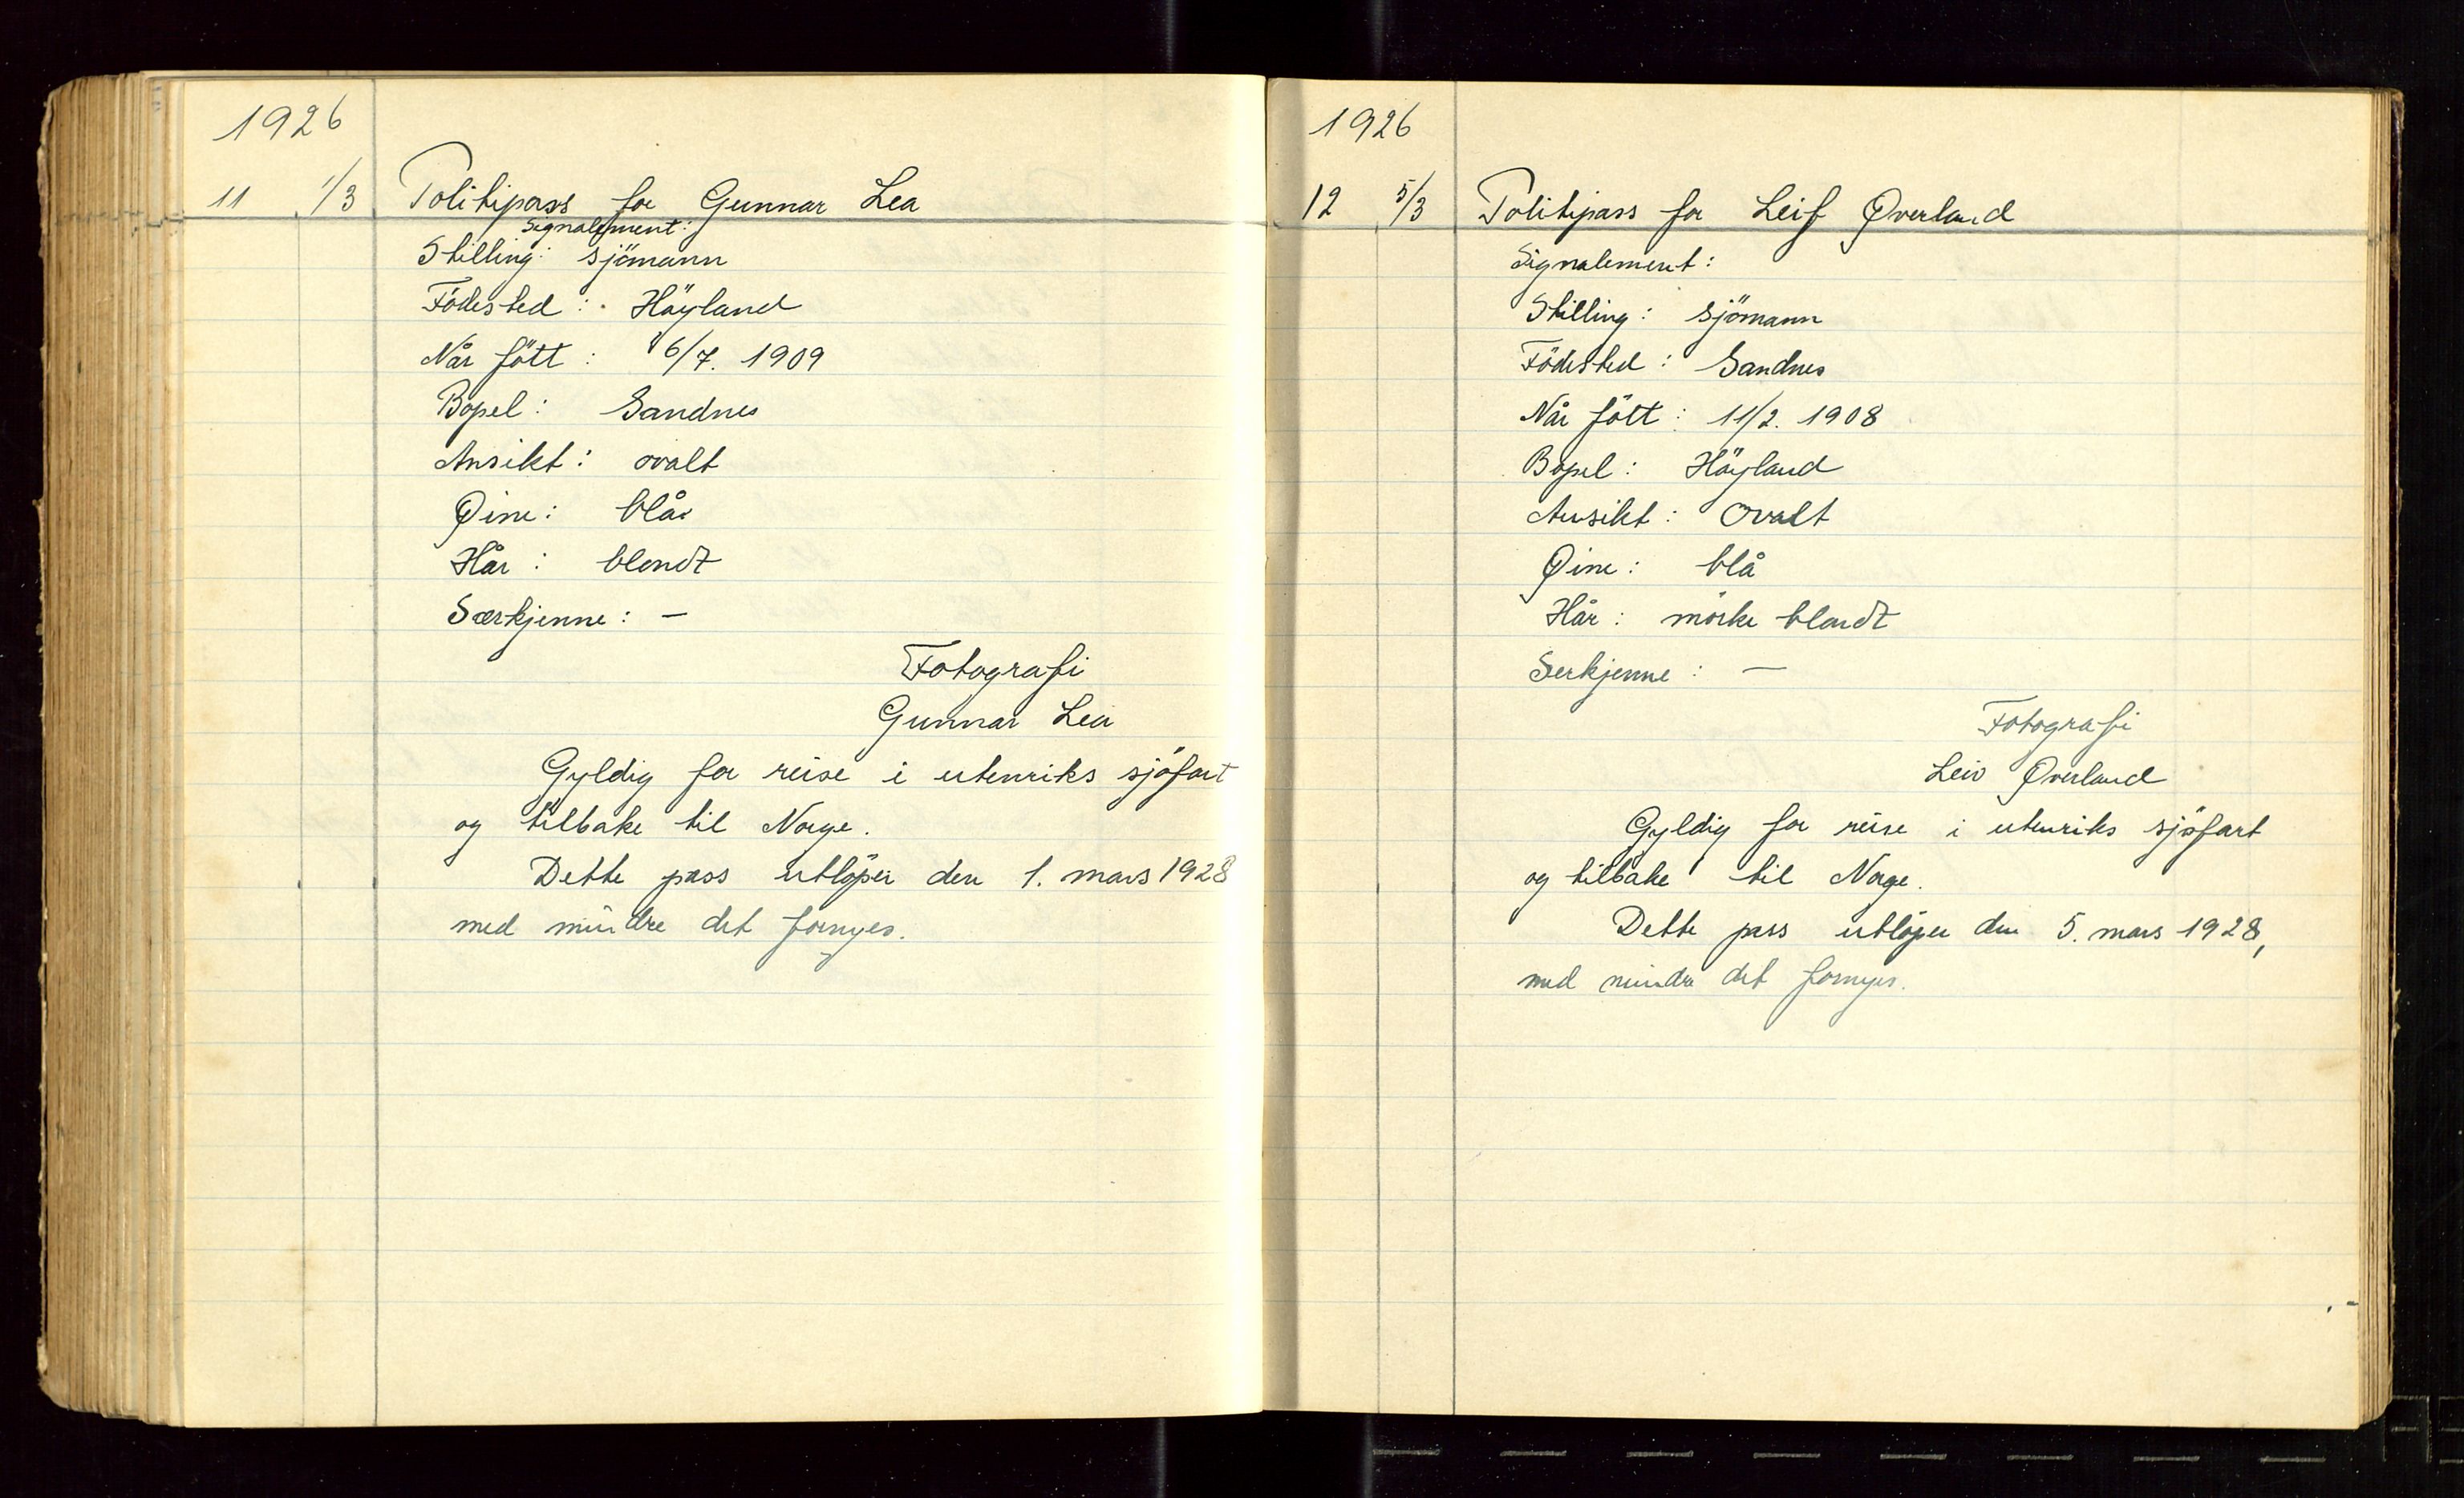 1926
11 1/3 Politipass for Gunnar Lea
Signalement:
Stilling: sjömann
Födested: Höyland
Når fött: 6/7. 1909
Bopel: Sandnes
Ansikt: ovalt
Øine: blå
Hår: blondt
Særkjenne: —
Fotografi
Gunnar Lea
Gyldig for reise i utenriks sjöfart
og tilbake til Norge.
Dette pass utlöper den 1. mars 1928
med mindre det fornyes.
1926
12 5/3 Politipass for Leif Øverland
Signalement:
Stilling: sjömann
Födested: Sandnes
Når fött: 11/2. 1908
Bopel: Höyland
Ansikt: ovalt
Øine: blå
Hår: mörke blondt
Serkjenne: —
Fotografi
Leiv Øverland
Gyldig for reise i utenriks sjöfart
og tilbake til Norge.
Dette pass utlöper den 5. mars 1928,
med mindre det fornyes.